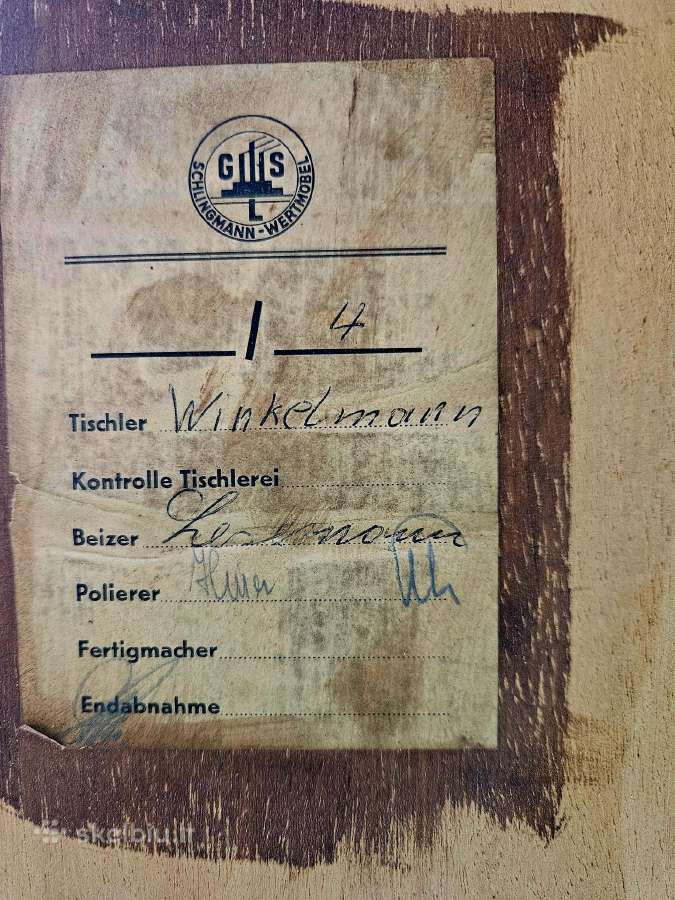 G S
L
SCHLINGMANN-WERTMÖBEL
/ 4
Tischler Winkelmann
Kontrolle Tischlerei
Beizer
Polierer
Fertigmacher
Endabnahme
skelbiu.lt